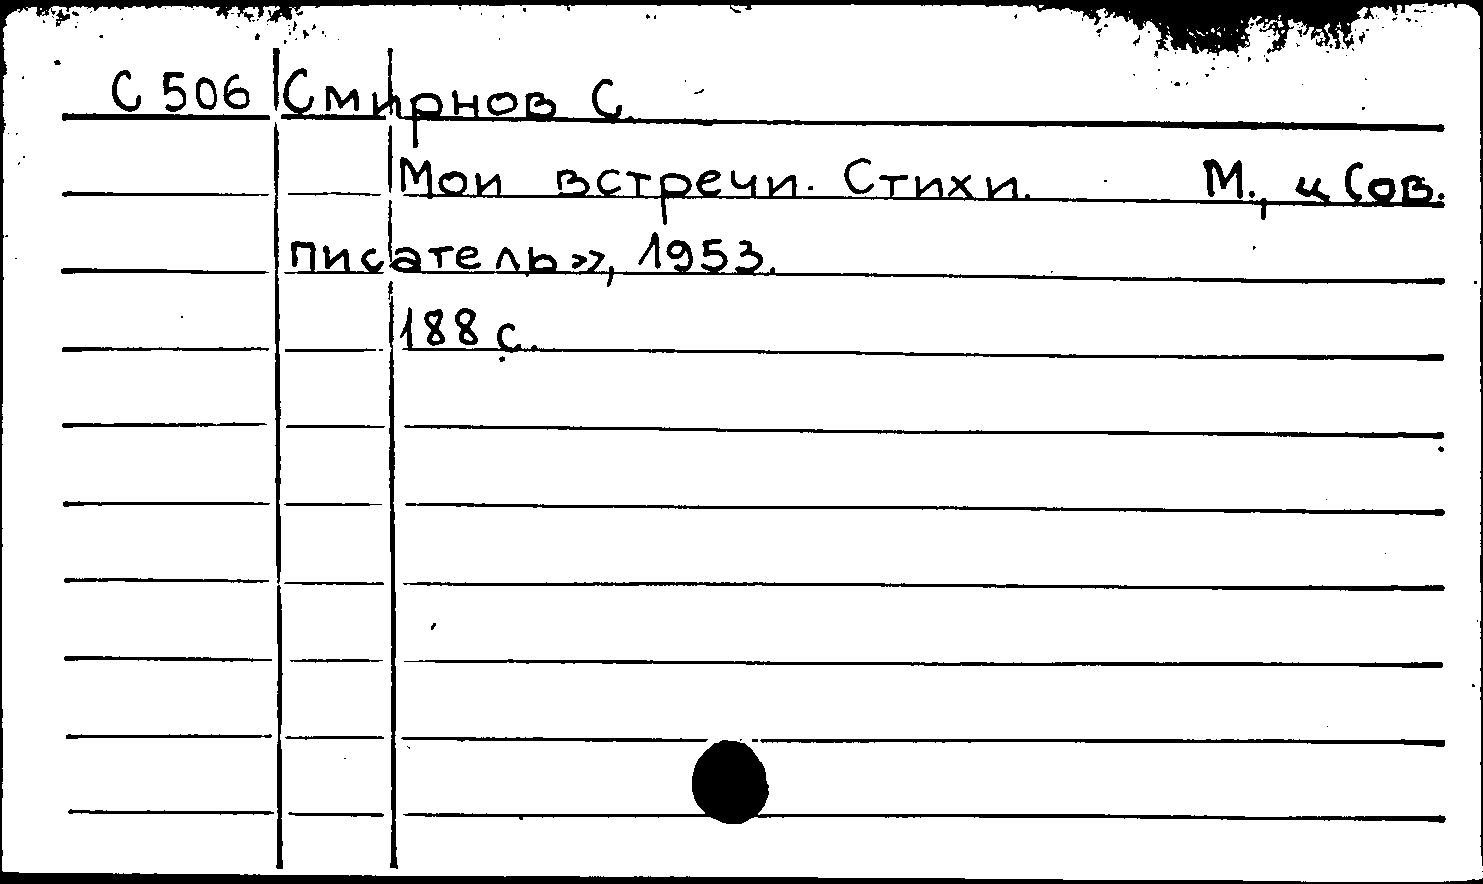 С 506 Смирнов С.
Мои встречи. Стихи. М., «Сов.
писатель», 1953.
188 с.